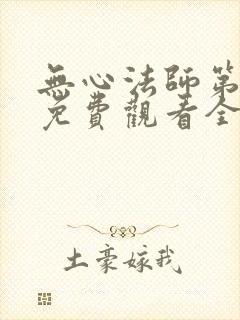 無心法師第
免費觀看全
土豪嫁我